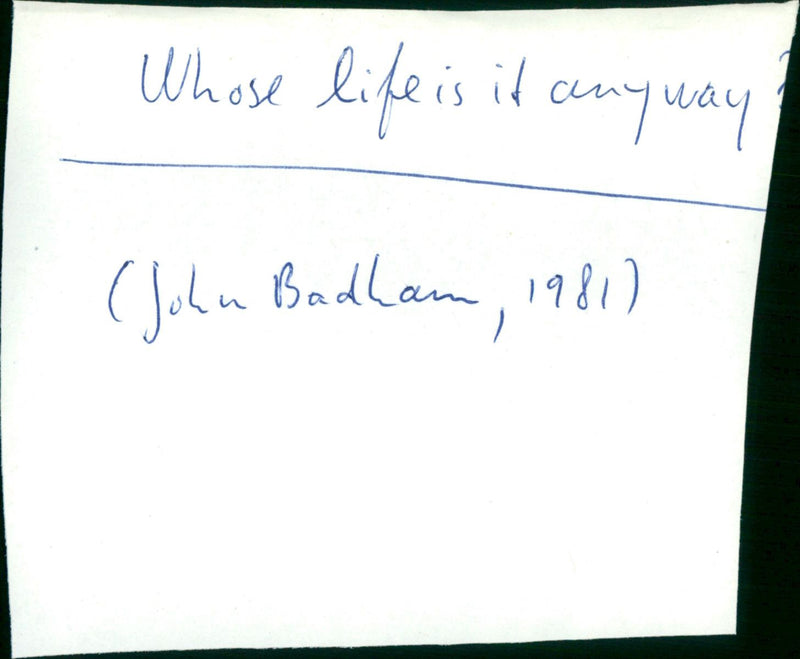 Whose life is it anyway?
(John Badham, 1981)